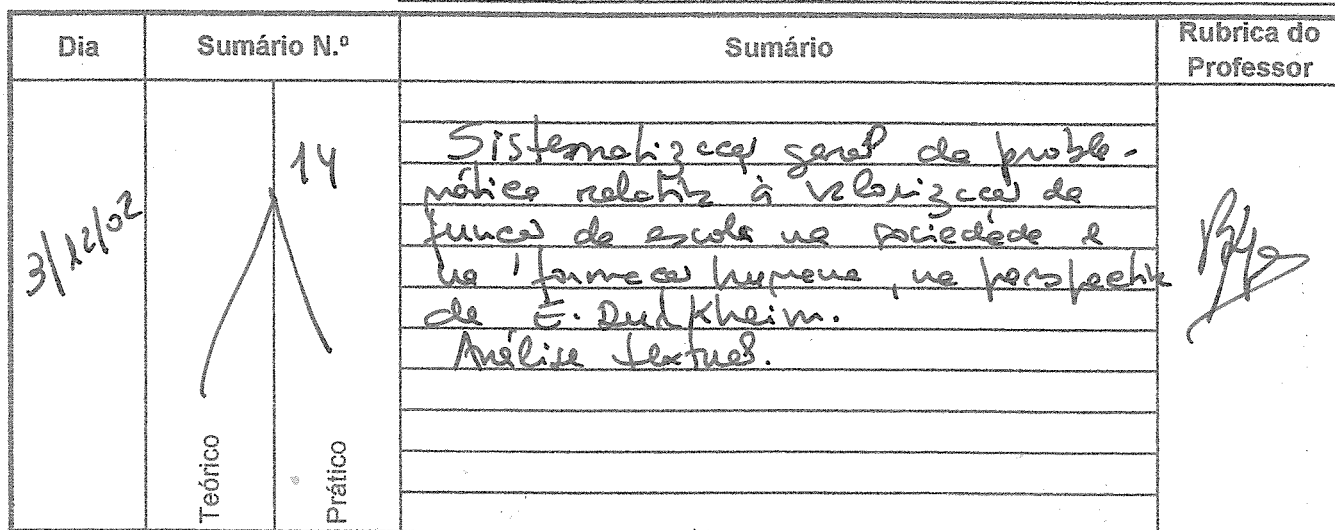 Dia Sumário N.º Sumário Rubrica do Professor
3/12/02
14
Sistematização geral da proble-
mática relativa à valorização da
função da escola na sociedade e
na formação humana, na perspectiva
de E. Durkheim.
Análise textual.
Teórico Prático